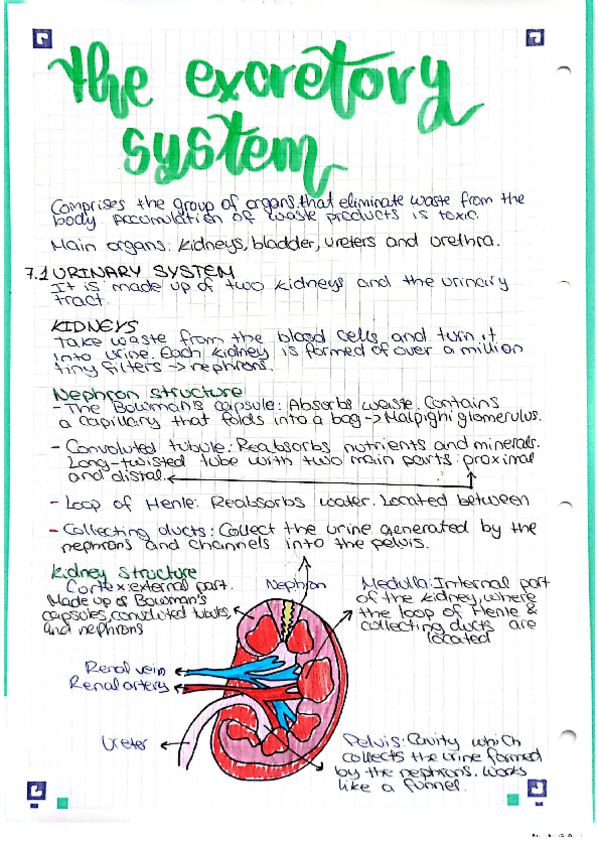 the excretory
system
Comprises the group of organs that eliminate waste from the
body. Accumulation of waste products is toxic.
Main organs: kidneys, bladder, ureters and urethra.
7.1 URINARY SYSTEM
It is made up of two kidneys and the urinary
tract.
KIDNEYS
Take waste from the blood cells and turn it
into urine. Each kidney is formed of over a million
tiny filters → nephrons.
Nephron structure
- The Bowman's capsule: Absorbs waste. Contains
a capillary that folds into a bag → Malpighi glomerulus.
- Convoluted tubule: Reabsorbs nutrients and minerals.
Long-twisted tube with two main parts: proximal
and distal.
- Loop of Henle: Reabsorbs water. Located between
- Collecting ducts: Collect the urine generated by the
nephrons and channels into the pelvis.
Kidney structure
Cortex: external part.
Made up of Bowman's
capsules, convoluted tubules,
and nephrons
Nephron
Medulla: Internal part
of the kidney, where
the loop of Henle &
collecting ducts are
located
Renal vein
Renal artery
Ureter
Pelvis: Cavity which
collects the urine formed
by the nephrons. Works
like a funnel.